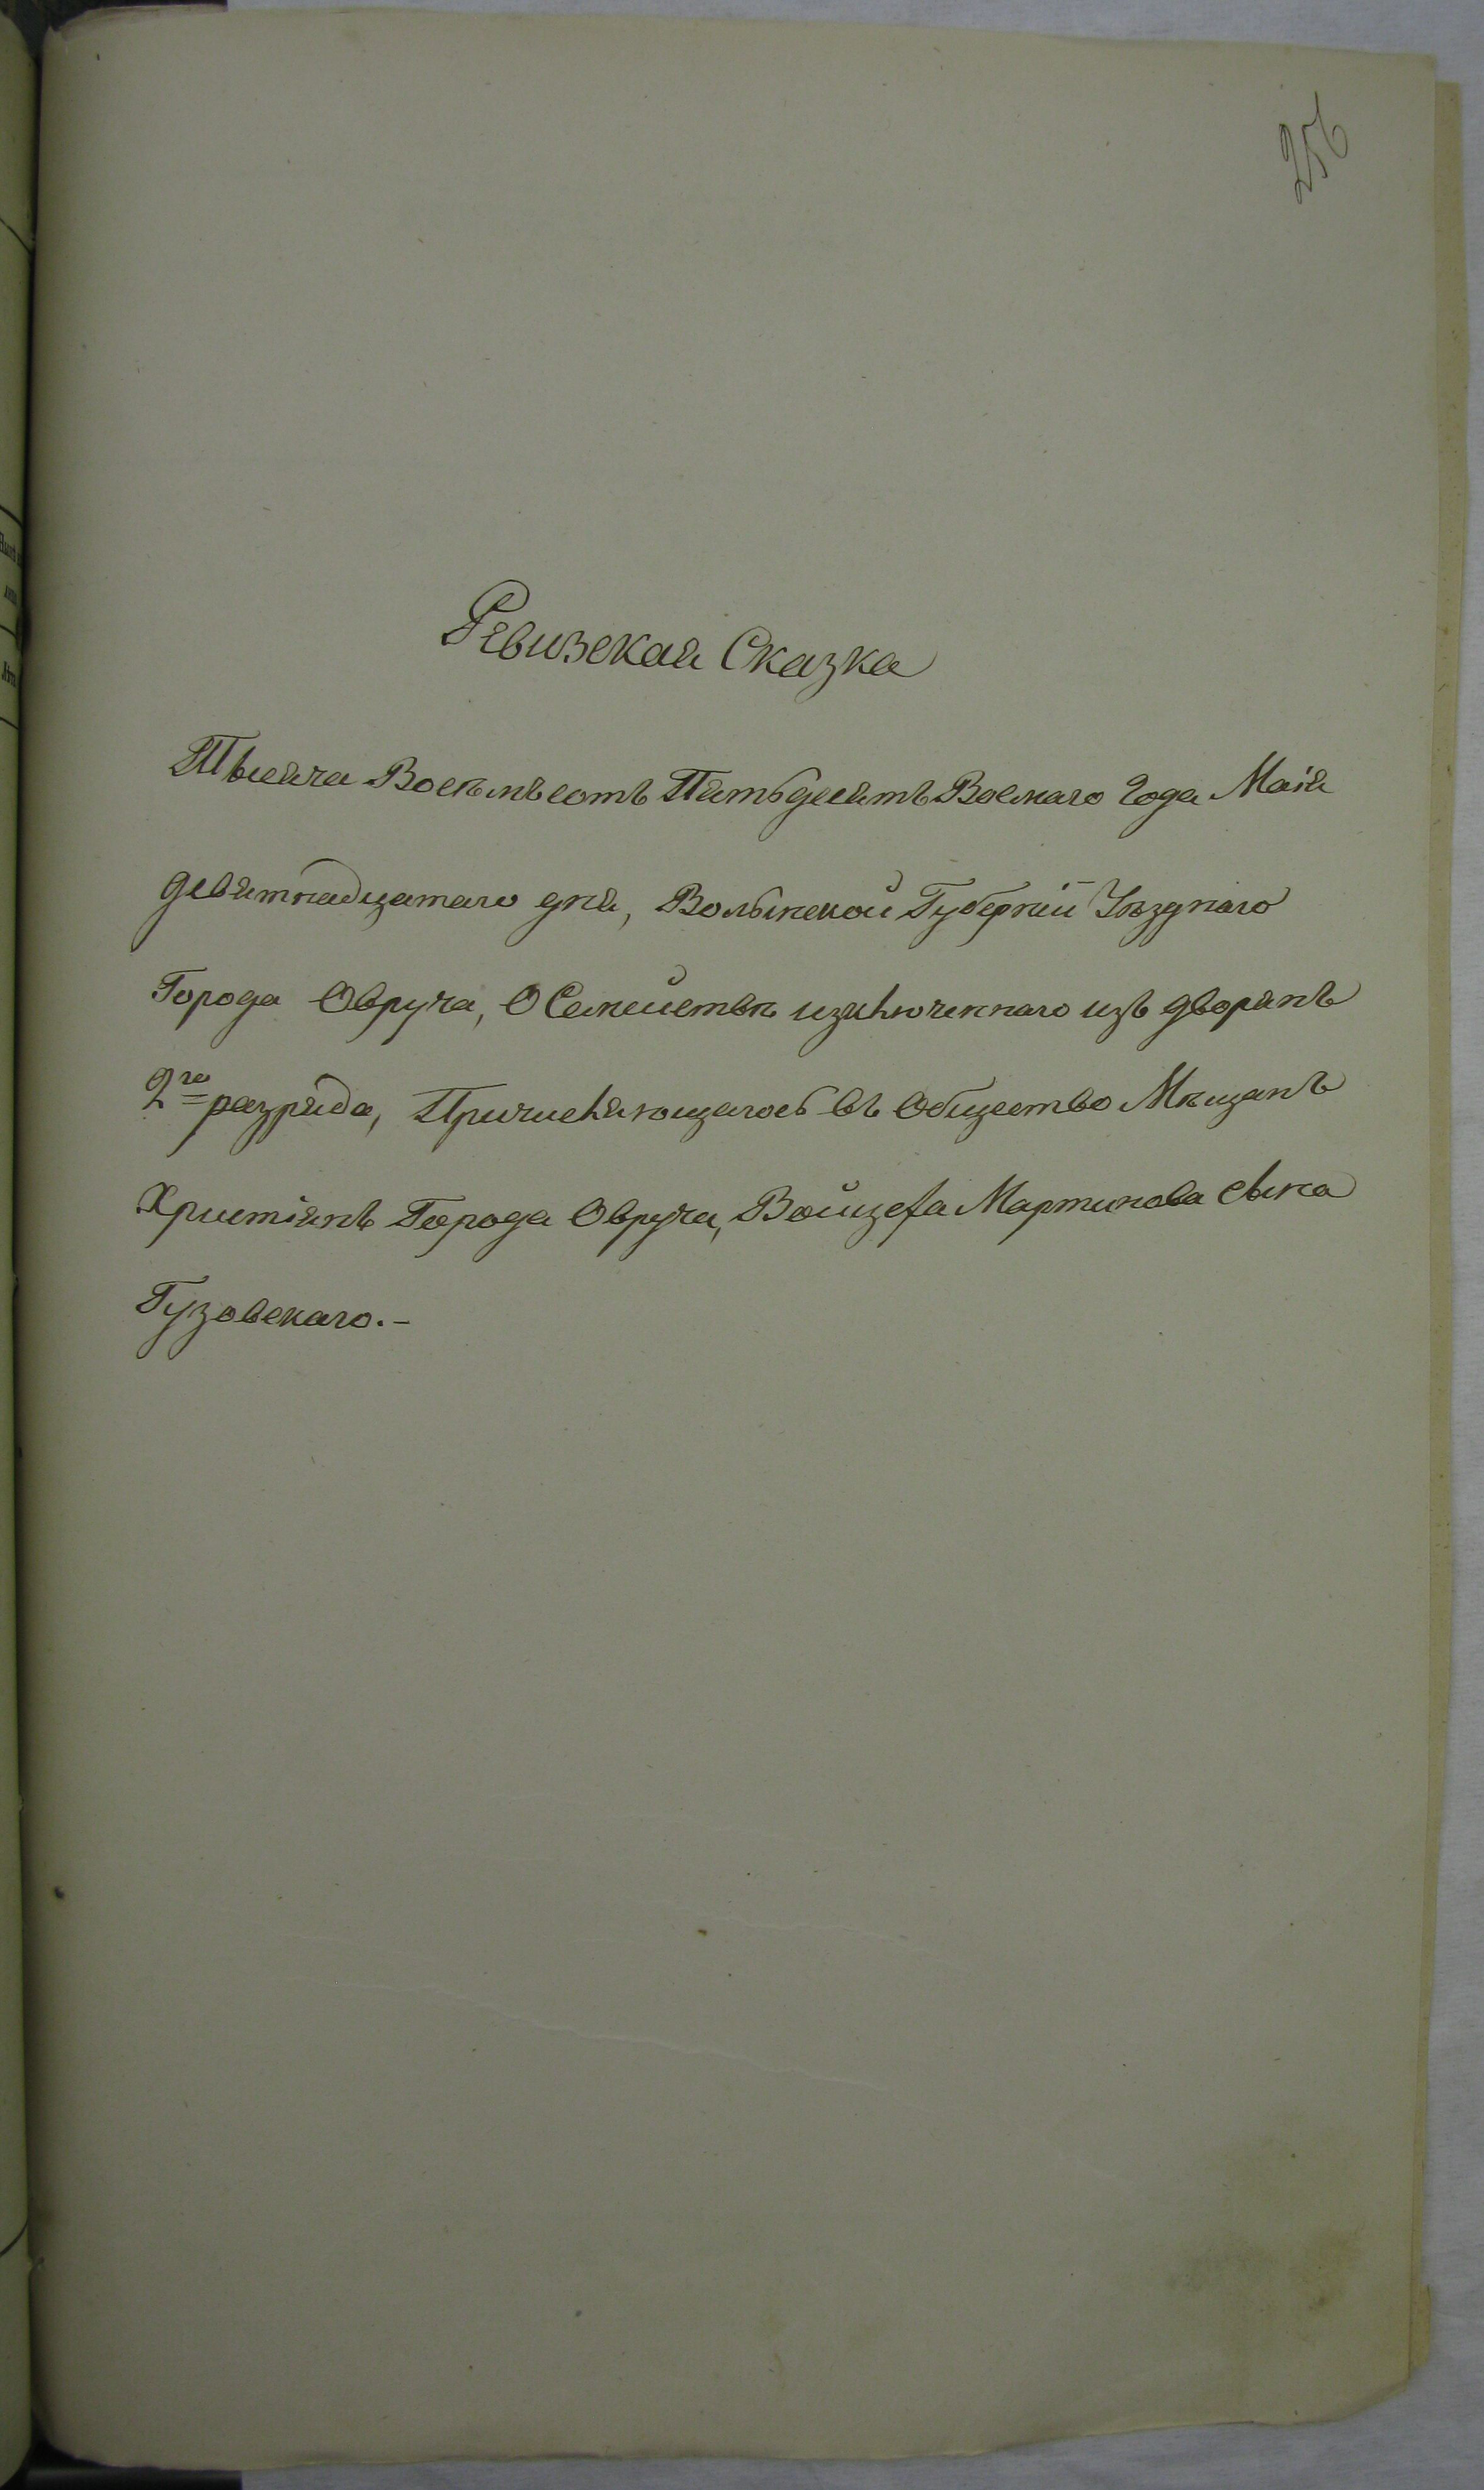 256
Ревизская Сказка
Тысяча Восемьсотъ Пятьдесятъ Восмаго Года Маія
девятнадцатаго дня, Волынской Губерніи Уѣзднаго
Города Овруча, О Семействѣ изключеннаго изъ дворянъ
2го разряда, Причисляющагось въ Общество Мѣщанъ
Христіянъ Города Овруча, Войцеха Мартинова сына
Гузовскаго.-